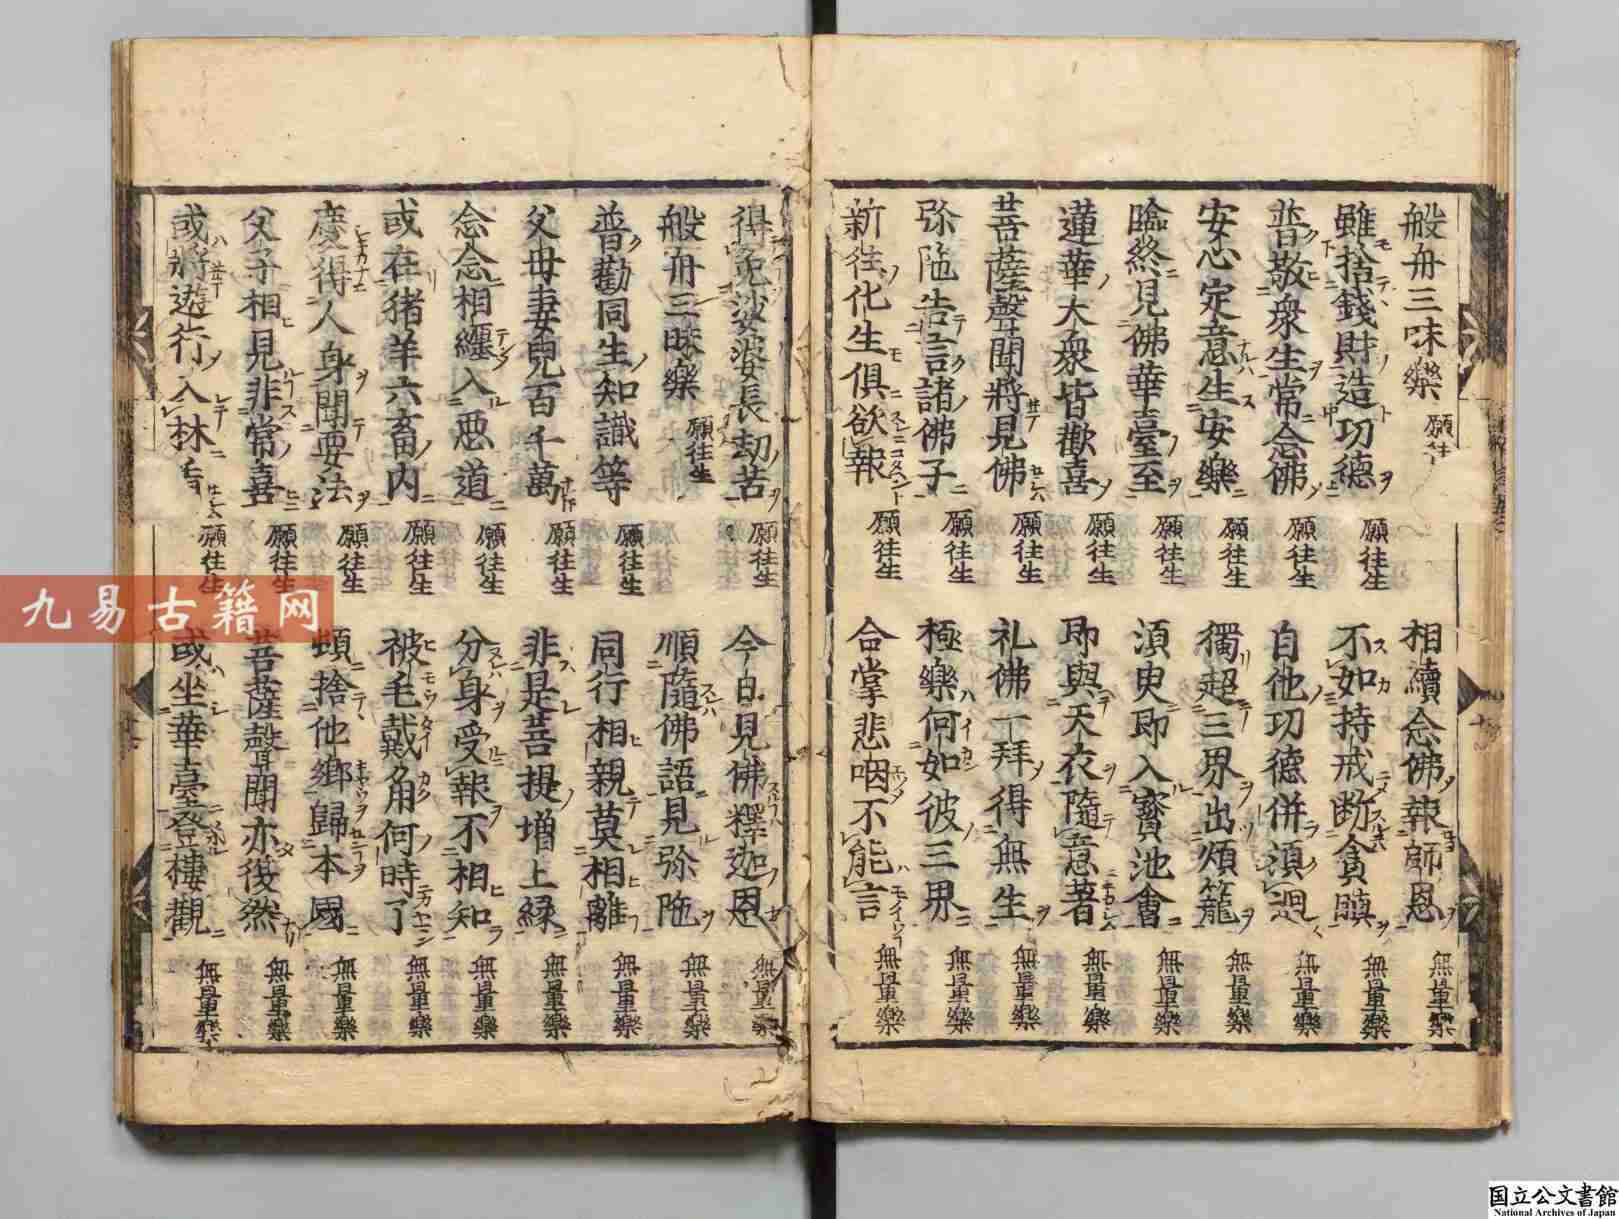 般舟三昧樂 願往生 相續念佛報師恩 無量樂
雖捨錢財造功德 願徃生 不如持戒断貪瞋 無量樂
普敬衆生常念佛 願徃生 自他功德併須迴 無量樂
安心定意生安樂 願徃生 獨超三界出煩籠 無量樂
臨終見佛華臺至 願徃生 須臾即入寳池會 無量樂
蓮華大衆皆歡喜 願徃生 即與天衣隨意著 無量樂
菩薩聲聞將見佛 願徃生 礼佛一拜得無生 無量樂
弥陁告言諸佛子 願徃生 極樂何如彼三界 無量樂
新徃化生俱欲報 願徃生 合掌悲咽不能言 無量樂
得免娑婆長劫苦 願徃生 今日見佛釋迦恩 無量樂
般舟三昧樂 願徃生 順隨佛語見弥陁 無量樂
普勸同生知識等 願徃生 同行相親莫相離 無量樂
父母妻兒百千萬 願徃生 非是菩提增上緣 無量樂
念念相纏入惡道 願徃生 分身受報不相知 無量樂
或在猪羊六畜内 願徃生 被毛戴角何時了 無量樂
慶得人身聞要法 願徃生 頓捨他鄉歸本國 無量樂
父子相見非常喜 願徃生 菩薩聲聞亦復然 無量樂
或將遊行入林看 願徃生 或坐華臺登樓觀 無量樂
九易古籍网
国立公文書館
National Archives of Japan